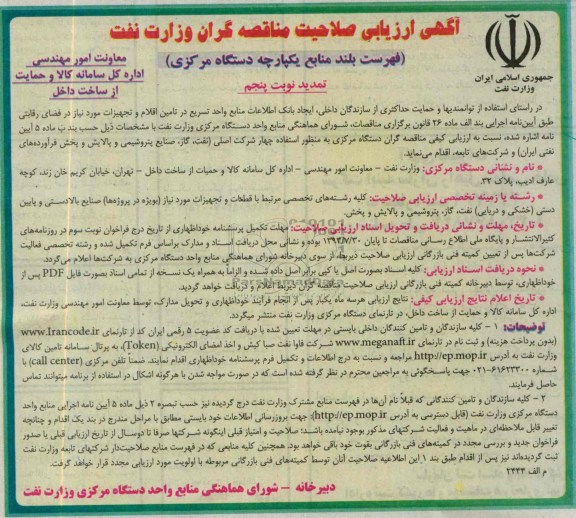 آگهی ارزیابی صلاحیت مناقصه گران وزارت نفت
(فهرست بلند منابع یکپارچه دستگاه مرکزی)
تمدید نوبت پنجم
جمهوری اسلامی ایران
وزارت نفت
معاونت امور مهندسی
اداره کل سامانه کالا و حمایت
از ساخت داخل
در راستای استفاده از توانمندیها و حمایت حداکثری از سازندگان داخلی، ایجاد بانک اطلاعات منابع واحد تسریع در تامین اقلام و تجهیزات مورد نیاز در فضای رقابتی
طبق آیین‌نامه اجرایی بند الف ماده ۲۶ قانون برگزاری مناقصات، شورای هماهنگی منابع واحد دستگاه مرکزی وزارت نفت با مشخصات ذیل حسب بند ب ماده ۵ آیین
نامه اشاره شده، نسبت به ارزیابی کیفی مناقصه گران دستگاه مرکزی به منظور استفاده چهار شرکت اصلی (نفت، گاز، صنایع پتروشیمی و پالایش و پخش فرآورده‌های
نفتی ایران) و شرکت‌های تابعه، اقدام می‌نماید.
* نام و نشانی دستگاه مرکزی: وزارت نفت - معاونت امور مهندسی - اداره کل سامانه کالا و حمایت از ساخت داخل - تهران، خیابان کریم خان زند، کوچه
عارف ادیب، پلاک ۳۲.
* رشته یا زمینه تخصصی ارزیابی صلاحیت: کلیه رشته‌های تخصصی مرتبط با قطعات و تجهیزات مورد نیاز (بویژه در پروژه‌ها) صنایع بالادستی و پایین
دستی (خشکی و دریایی) نفت، گاز، پتروشیمی و پالایش و پخش.
* تاریخ، مهلت و نشانی دریافت و تحویل اسناد ارزیابی صلاحیت: مهلت تکمیل پرسشنامه خوداظهاری از تاریخ درج فراخوان نوبت سوم در روزنامه‌های
کثیرالانتشار و پایگاه ملی اطلاع رسانی مناقصات تا پایان ۱۳۹۳/۷/۳۰ بوده و نشانی محل دریافت اسناد و مدارک براساس فرم تکمیل شده و رشته تخصصی فعالیت
شرکت‌ها پس از تعیین کمیته فنی بازرگانی ارزیابی صلاحیت ذیربط، از سوی دبیرخانه شورای هماهنگی منابع واحد دستگاه مرکزی به شرکت‌ها اعلام می‌گردد.
* نحوه دریافت اسناد ارزیابی: کلیه اسناد بصورت اصل یا کپی برابر اصل داده شده و الزاماً به همراه یک نسخه از تمامی اسناد بصورت فایل PDF پس از
خوداظهاری، توسط دبیرخانه کمیته فنی بازرگانی ارزیابی صلاحیت مناقصه گران ذیربط اعلام و دریافت خواهد گردید.
* تاریخ اعلام نتایج ارزیابی کیفی: نتایج ارزیابی هرسه ماه یکبار پس از انجام فرآیند خوداظهاری و تحویل مدارک، توسط معاونت امور مهندسی وزارت نفت،
اداره کل سامانه کالا و حمایت از ساخت داخل، در تارنمای دستگاه مرکزی وزارت نفت منتشر میگردد.
توضیحات: ۱ - کلیه سازندگان و تامین کنندگان داخلی بایستی در مهلت تعیین شده با دریافت کد عضویت ۵ رقمی ایران کد از تارنمای www.Irancode.ir
(بدون پرداخت هزینه) و ثبت نام در تارنمای www.meganaft.ir شرکت فاوا نفت صبا کیش و اخذ امضای الکترونیکی (Token)، به پرتال سامانه تامین کالای
وزارت نفت به آدرس http://ep.mop.ir مراجعه و نسبت به درج اطلاعات و تکمیل فرم پرسشنامه خوداظهاری اقدام نمایند. ضمناً تلفن مرکزی (call center) با
شماره ۶۱۶۲۳۳۰۰-۰۲۱ جهت پاسخگویی به مراجعین محترم در نظر گرفته شده است که در صورت مواجه شدن با هرگونه اشکال در استفاده از برنامه میتوانند تماس
حاصل فرمایند.
۲ - کلیه سازندگان و تامین کنندگانی که قبلاً نام آن‌ها در فهرست منابع مشترک وزارت نفت درج گردیده نیز حسب تبصره ۲ ذیل ماده ۵ آیین نامه اجرایی منابع واحد
دستگاه مرکزی وزارت نفت (قابل دسترسی به آدرس http://ep.mop.ir)؛ جهت بروزرسانی اطلاعات خود بایستی مطابق با مراحل مندرج در بند یک اقدام و چنانچه
تغییر قابل ملاحظه‌ای در ماهیت و فعالیت شرکتهای مذکور بوجود نیامده باشد؛ صلاحیت و امتیاز قبلی اینگونه شرکتها صرفا تا دوسال از تاریخ ارزیابی قبلی یا صدور
فراخوان جدید و بررسی مجدد در کمیته‌های فنی بازرگانی بقوت خود باقی خواهد بود. همچنین کلیه منابعی که در فهرست منابع صلاحیت‌دار شرکتهای تابعه وزارت نفت
ثبت گردیده‌اند نیز پس از اقدام طبق بند ۱ این اطلاعیه صلاحیت آنان توسط کمیته‌های فنی بازرگانی مربوطه با اولویت مورد ارزیابی مجدد قرار خواهد گرفت.
م الف ۲۴۴۳
دبیرخانه - شورای هماهنگی منابع واحد دستگاه مرکزی وزارت نفت